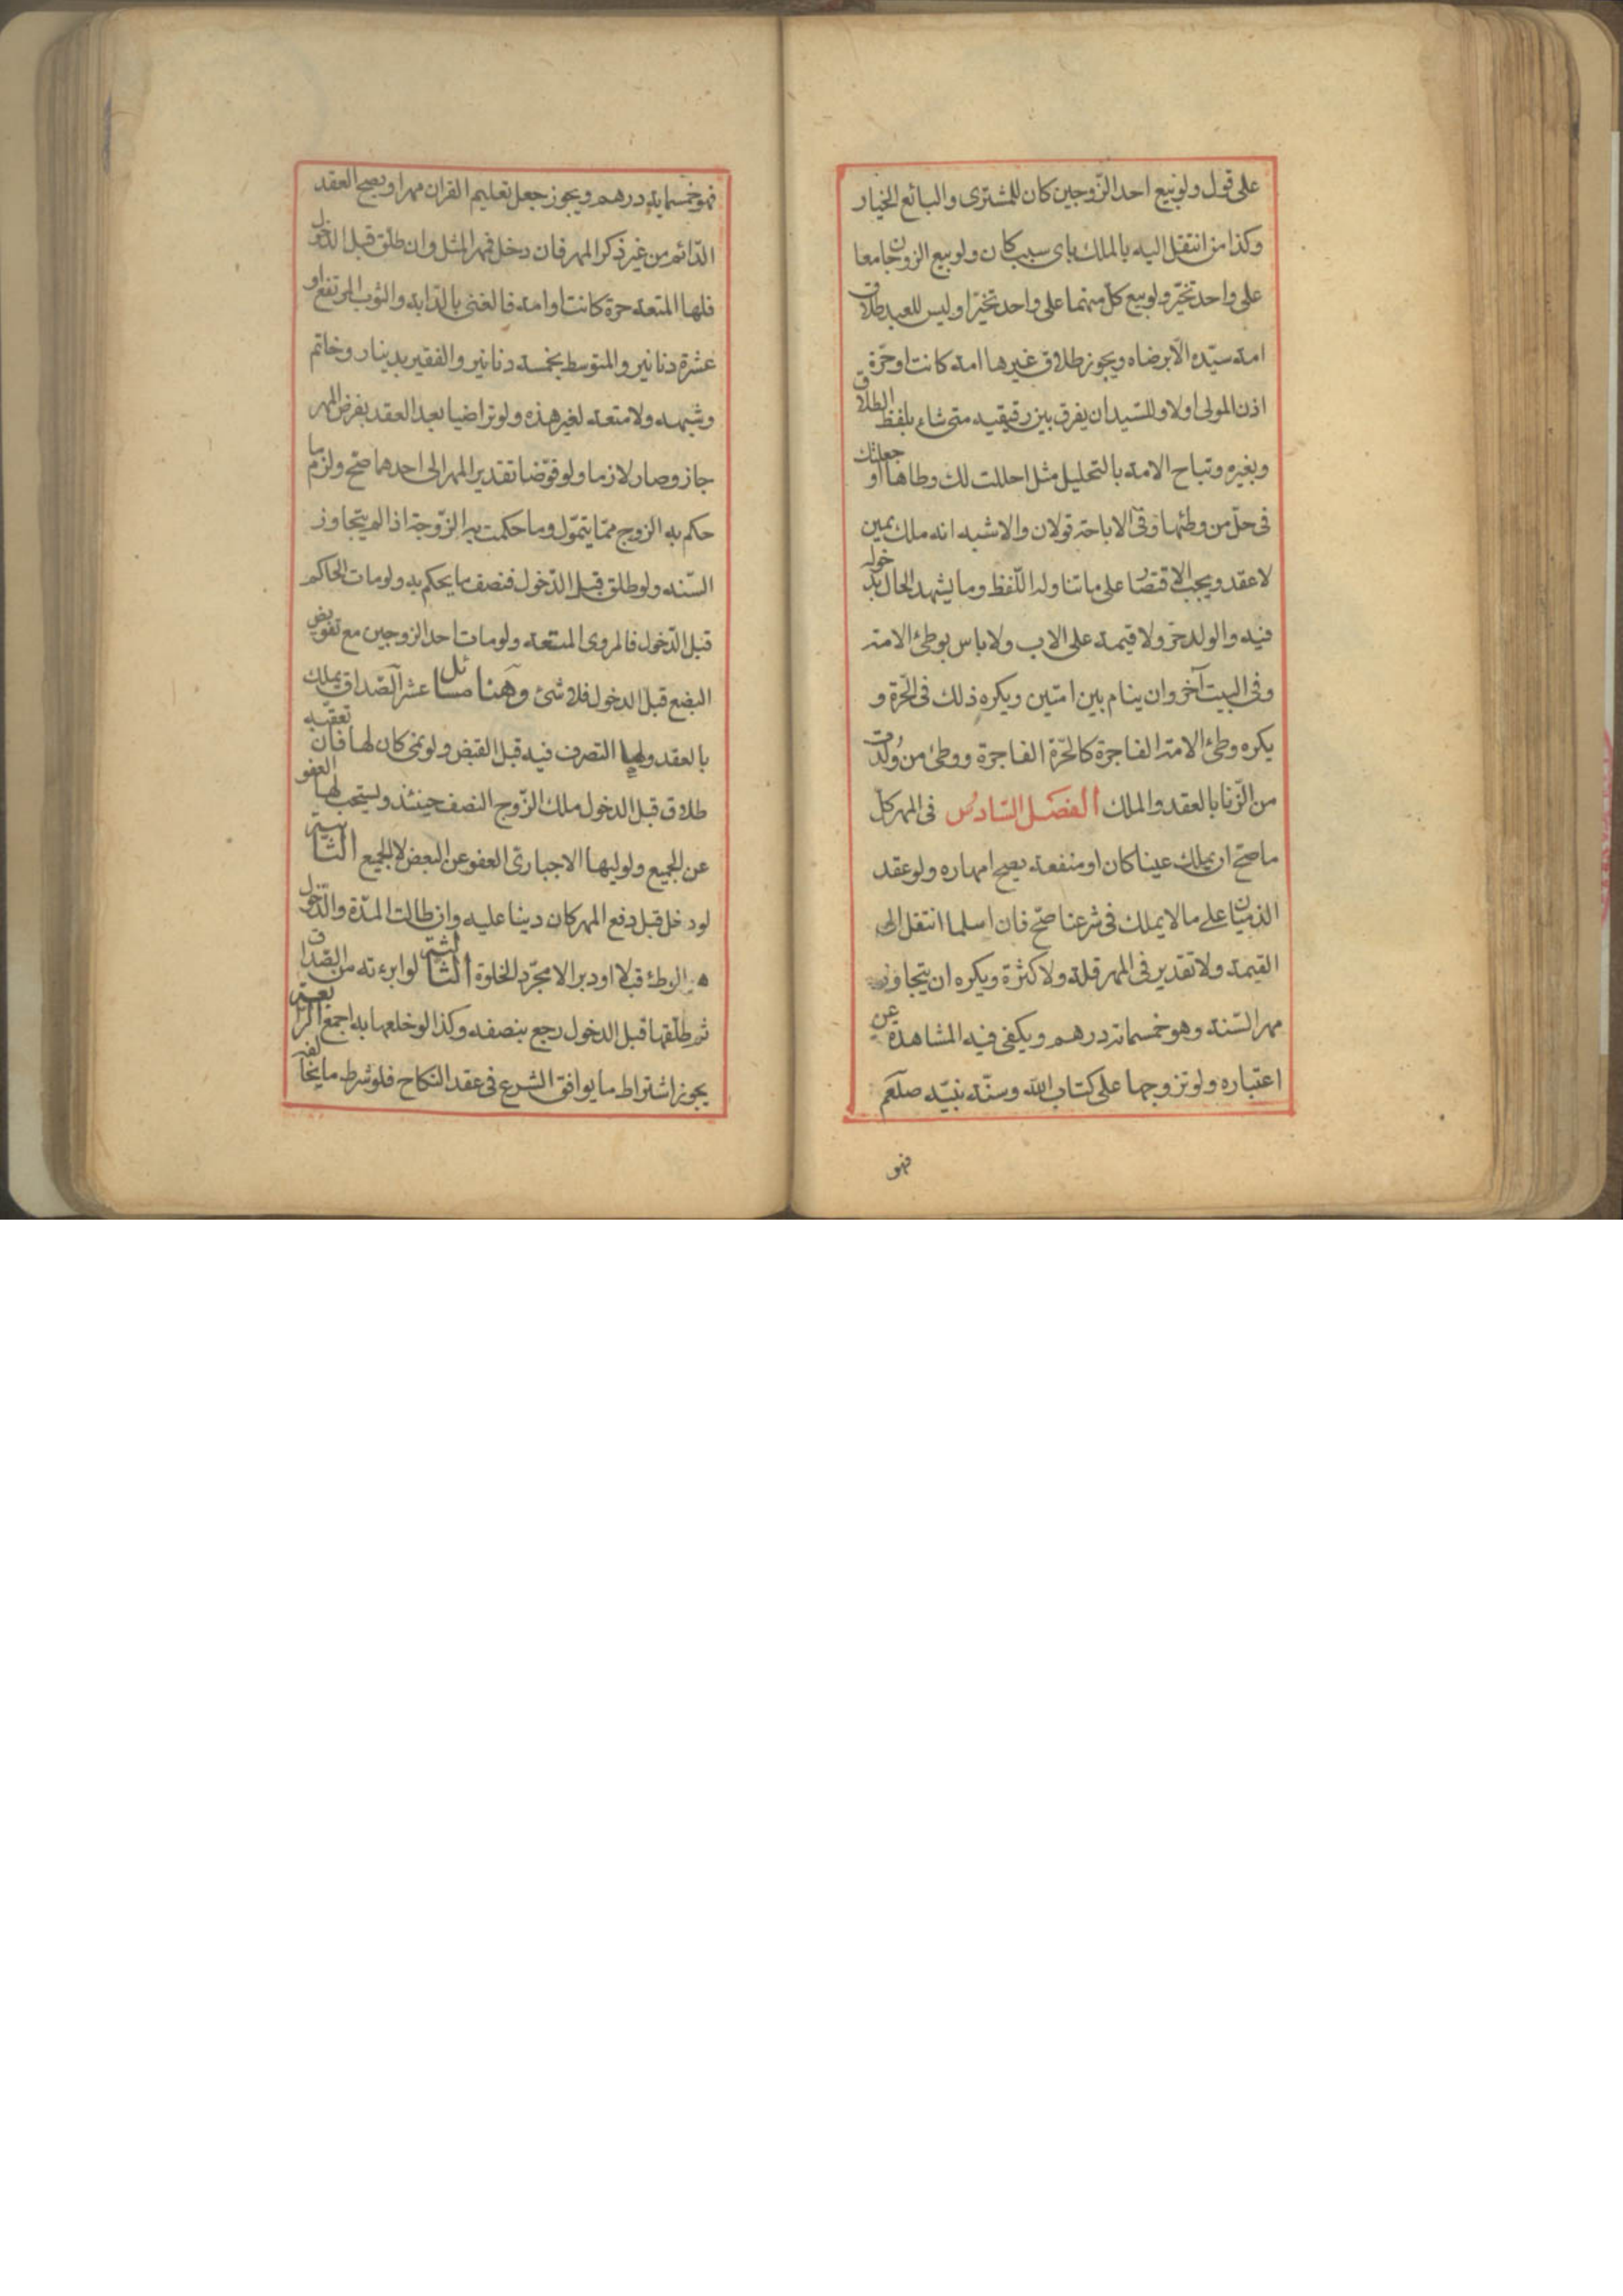 على قول ولو بيع احد الزّوجين كان للمشترى والبائع الخيار
وكذا من انتقل اليه بالملك باى سبب كان ولو بيع الزوجان معا
على واحد تخيّر ولو بيع كل منهما على واحد تخيّرا وليس للعبد طلاق
امة سيّده الّا برضاه ويجوز طلاق غيرها امة كانت او حرّة
اذن المولى اولا وللسّيد ان يفرق بين رقيقيه متى شاء بلفظ الطلاق
وبغيره وتباح الامة بالتحليل مثل احللت لك وطاها او جعلتك
فى حلّ من وطئها وفى الاباحة قولان والاشبه انه ملك يمين
لا عقد ويجب الاقتصار على ما تناوله اللّفظ وما يشهد الحال بدخوله
فيه والولد حرّ ولا قيمة على الاب ولا باس بوطئ الامة
وفى البيت آخر وان ينام بين امتين ويكره ذلك فى الحّرة و
يكره وطئ الامة الفاجرة كالحّرة الفاجرة ووطئ من وُلدت
من الزّنا بالعقد والملك الفصل السّادس فى المهر كل
ما صحّ ان يملك عينا كان او منفعة يصح امهاره ولو عقد
الذميّان على ما لا يملك فى شرعنا صحّ فان اسلما انتقل الى
القيمة ولا تقدير فى المهر قلة ولا كثرة ويكره ان يتجاوز
مهر السّنة وهو خمسمائة درهم ويكفى فيه المشاهدة عن
اعتباره ولو تزوجها على كتاب الله وسنّة نبيّه صلعم
فهو
فهو خمسماية درهم ويجوز جعل تعليم القران مهرا ويصح العقد
الدّائم من غير ذكر المهر فان دخل فمهر المثل وان طلّق قبل الدّخول
فلها المتعة حرّة كانت او امة فالغنى بالدّابة والثوب المرتفع او
عشرة دنانير والمتوسط بخمسة دنانير والفقير بدينار وخاتم
وشبهه ولا متعة لغير هذه ولو تراضيا بعد العقد بفرض المهر
جاز وصار لازما ولو فوّضا تقدير المهر الى احدهما صحّ ولزم ما
حكم به الزوج ممّا يتموّل وما حكمت به الزّوجة اذا لم يتجاوز
السّنة ولو طلق قبل الدّخول فنصف ما يحكم به ولو مات الحاكم
قبل الدّخول فالمروى المتعة ولو مات احد الزوجين مع تفويض
البضع قبل الدخول فلا شئ وهنا مسائل عشر آ الصّداق يملك
بالعقد ولها التصرف فيه قبل القبض ولو نمى كان لها فان تعقبه
طلاق قبل الدخول ملك الزّوج النصف حينئذ ويستحب لها العفو
عن الجميع ولوليها الاجبارى العفو عن البعض لا الجميع الثانية
لو دخل قبل دفع المهر كان دينا عليه وان طالت المدّة والدّخول
هو الوطئ قبلا او دبرا لا مجرّد الخلوة الثالثة لو ابرءته من الصّداق
ثم طلّقها قبل الدخول رجع بنصفه وكذا لو خلعها به اجمع الرابعة
يجوز اشتراط ما يوافق الشرع فى عقد النكاح فلو شرط ما يخالفه